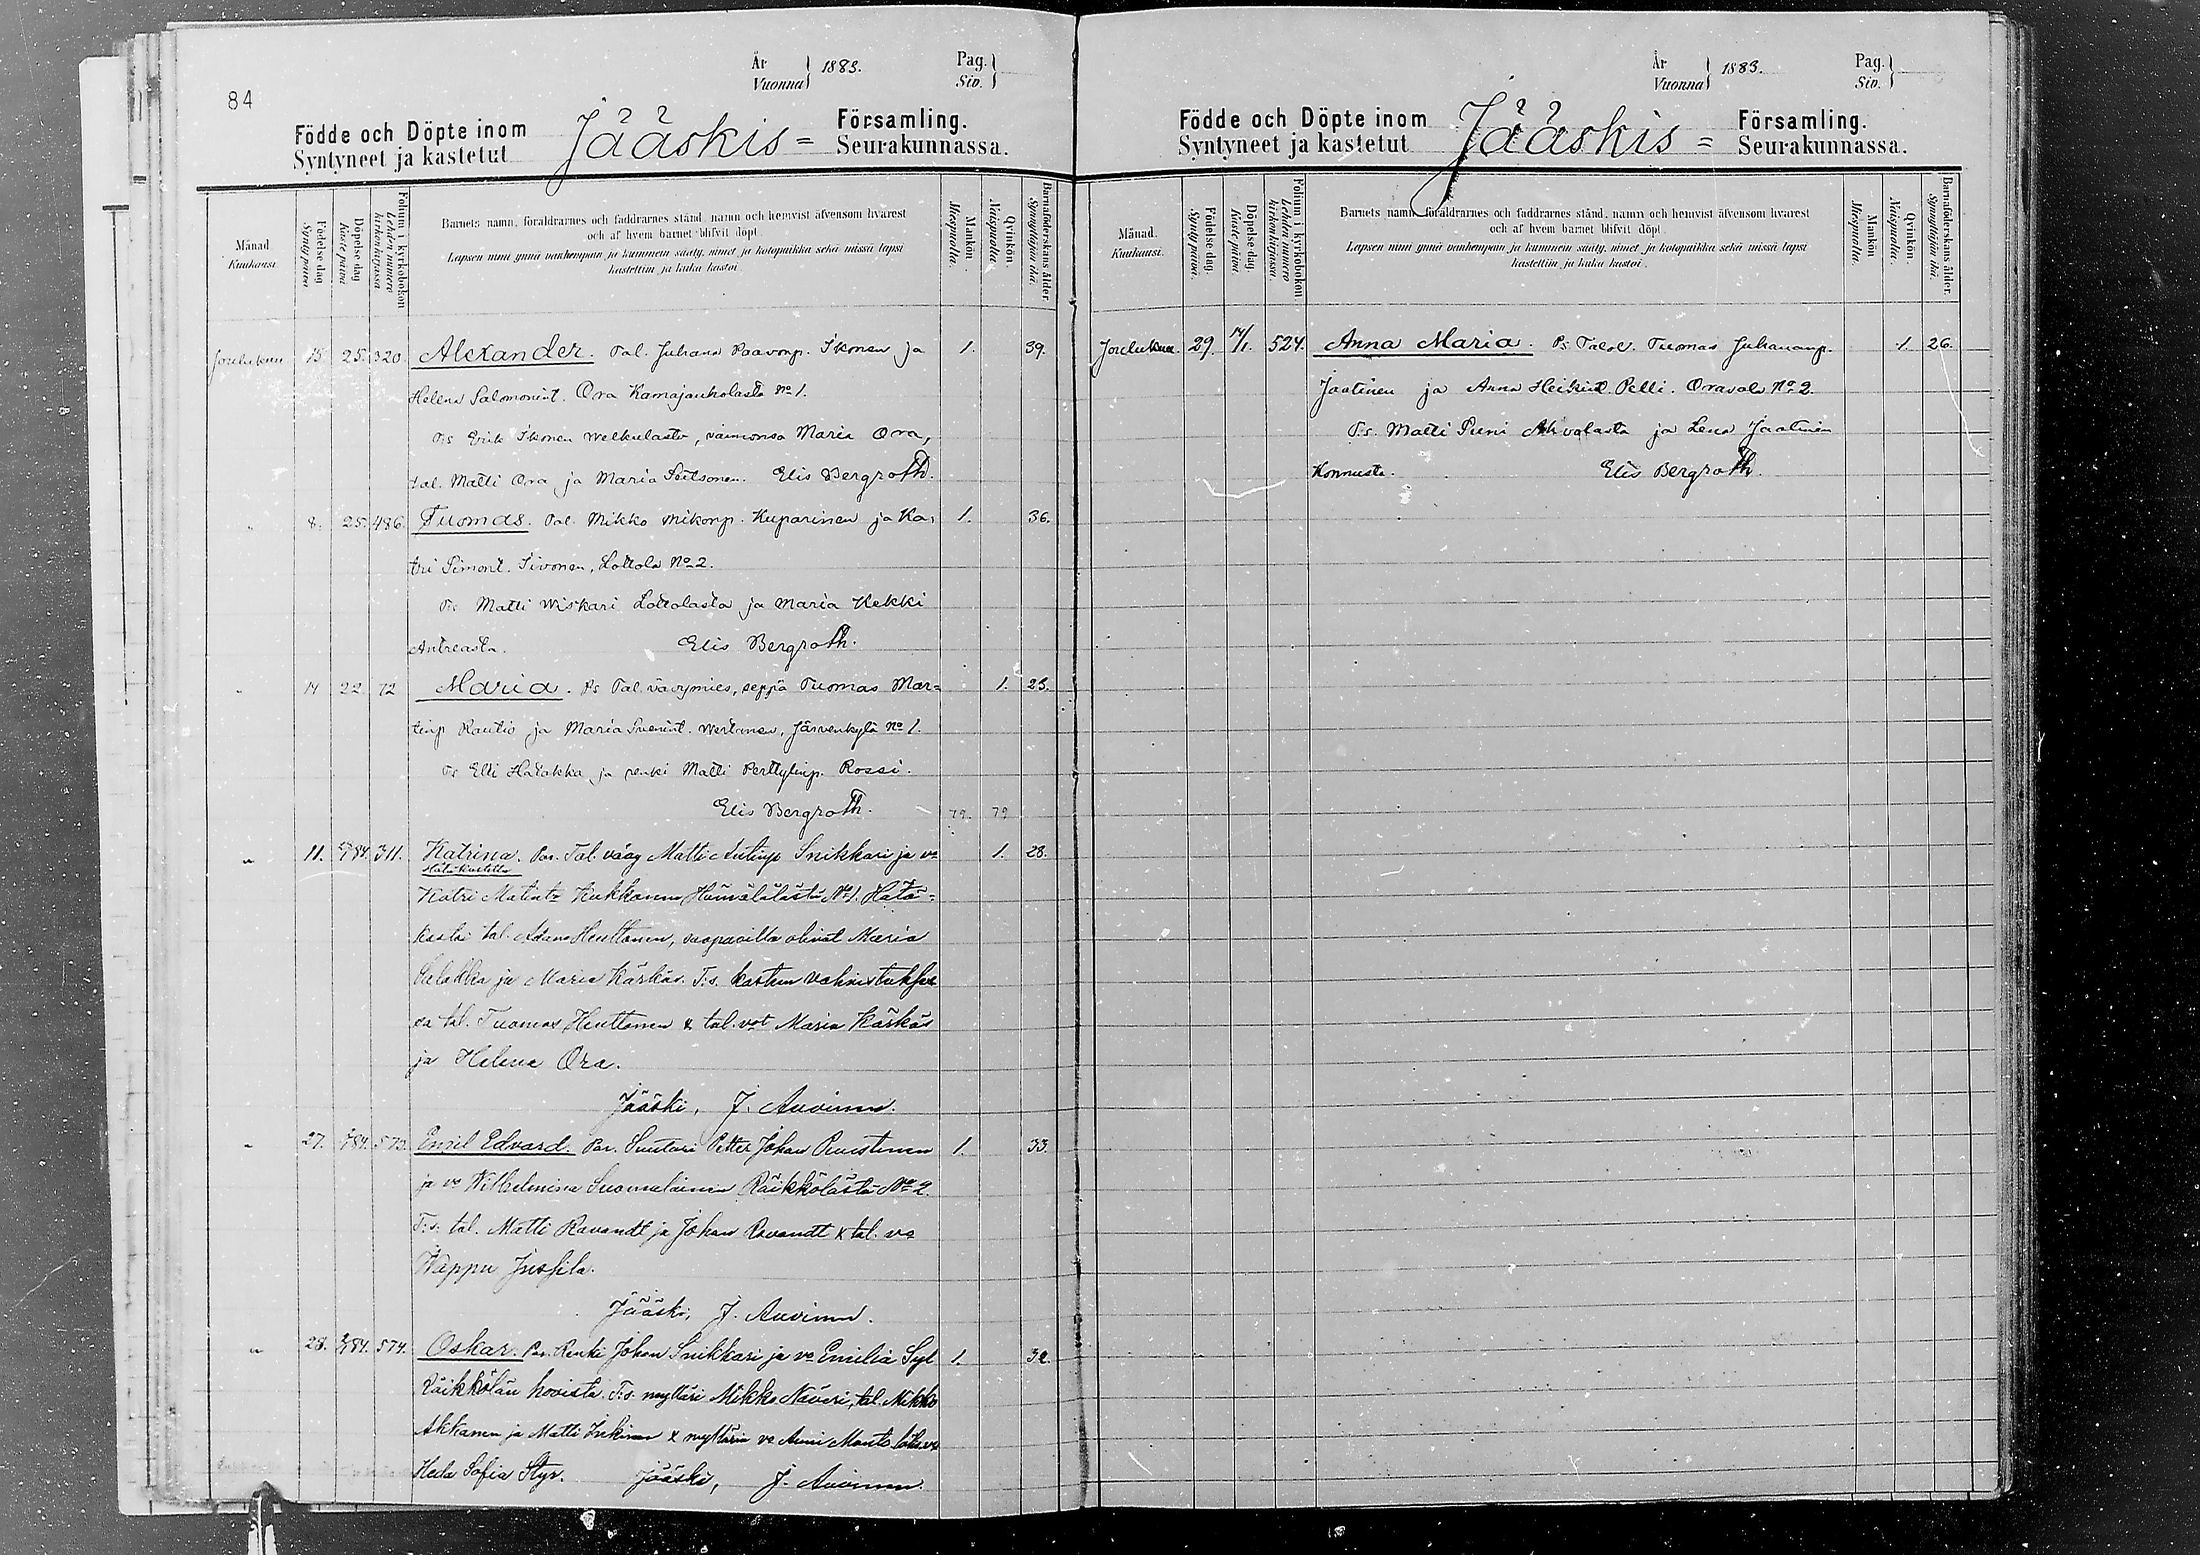 84
År
Vuonna } 1883.
Pag.
Siv. }
Födde och Döpte inom
Syntyneet ja kastetut
Jääskis =
Församling.
Seurakunnassa.
Månad.
Kuukausi.
Födelse dag
Synty päivä
Döpelse dag
Kaste päivä
Folium i kyrkoboken
Lehden numero kirkon kirjassa
Barnets namn, föräldrarnes och faddrarnes stånd, namn och hemvist äfvensom hvarest
och af hvem barnet blifvit döpt.
Lapsen nimi ynnä vanhempain ja kummein sääty, nimet ja kotopaikka sekä missä lapsi
kastettiin ja kuka kastoi.
Mankön.
Miespuolia.
Qvinkön.
Naispuolia.
Barnaföderskans ålder.
Synnyttäjän ikä.
Joulukuu 15 25. 320. Alexander. Tal. Juhana Paavonp. Ikonen ja 1. 39.
Helena Salomonint. Ora Kamajankolasta No 1.
Ts Erik Ikonen, vaimonsa Maria Ora,
tal. Matti Ora ja Maria Elis Bergroth.
" 8. 25. 486. Tuomas. Tal. Mikko Mikonp. Kuparinen ja Ka- 1. 36.
tri Simont. Sivonen, Lottola No 2.
Ts Matti Wiskari Lottolasta ja Maria Kekki
Antreasta. Elis Bergroth.
" 14 22. 72 Maria. Ps Tal. vävymies, seppä Tuomas Mar=
1. 23.
tinp Rautio ja Maria Järvenkylä No 1.
Ts Elli Hatakka ja renki Matti Perttylinp. Rossi.
Elis Bergroth. 79. 79
" 11. 84. 311. Katrina. Par. Tal. Matti Snikkari ja vo 1. 28.
Hätäkastettu
Katri Matint. Kukkonen Hämäläläästä No 1. Hätä-
kastoi tal. Adam Henttonen, saapuvilla olivat Maria
ja Maria Kärkäs. T:s. kasteen vahvistukses
sa tal. Tuomas Henttonen & tal. vot Maria Kärkäs
ja Helena Ora.
Jääski, J. Auvinen.
" 27. 84. 573. Emil Edvard. Par. Suutari Petter Johan 1. 33.
ja vo Wilhelmina Suomalainen Räikkölästä No 2.
T:s. tal. Matti Ravandt ja Johan Ravandt & tal. vo
Wappu Jussila.
Jääski, J. Auvinen.
" 28. 84. 574. Oskar. Par. Renki Johan Snikkari ja vo Emilia Syl 1. 32.
Räikkölän hovista. T:s. mylläri Mikko Naveri, tal. Mikko
Akkanen ja Matti Inkinen & myllärin vo Anni
Heda Sofia Styr. Jääski, J. Auvinen.
År
Vuonna } 1883.
Pag.
Siv. }
Födde och Döpte inom
Syntyneet ja kastetut
Jääskis =
Församling.
Seurakunnassa.
Månad.
Kuukausi.
Födelse dag.
Synty päivä.
Döpelse dag
Kaste päivä.
Folium i kyrkoboken
Lehden numero kirkon kirjassa.
Barnets namn, föräldrarnes och faddrarnes stånd, namn och hemvist äfvensom hvarest
och af hvem barnet blifvit döpt.
Lapsen nimi ynnä vanhempain ja kummein sääty, nimet ja kotopaikka sekä missä lapsi
kastettiin ja kuka kastoi.
Mankön
Miespuolia.
Qvinkön.
Naispuolia.
Barnaföderskans ålder.
Synnyttäjän ikä.
Joulukuu. 29. 14/1. 524. Anna Maria. Ps Tuomas Juhananp. 1. 26.
Jaatinen ja Anna Heikint. Pelli. Oravala No 2.
T.s. Matti Puni Ahvolasta ja Lena Jaatinen
Konnusta. Elis Bergroth